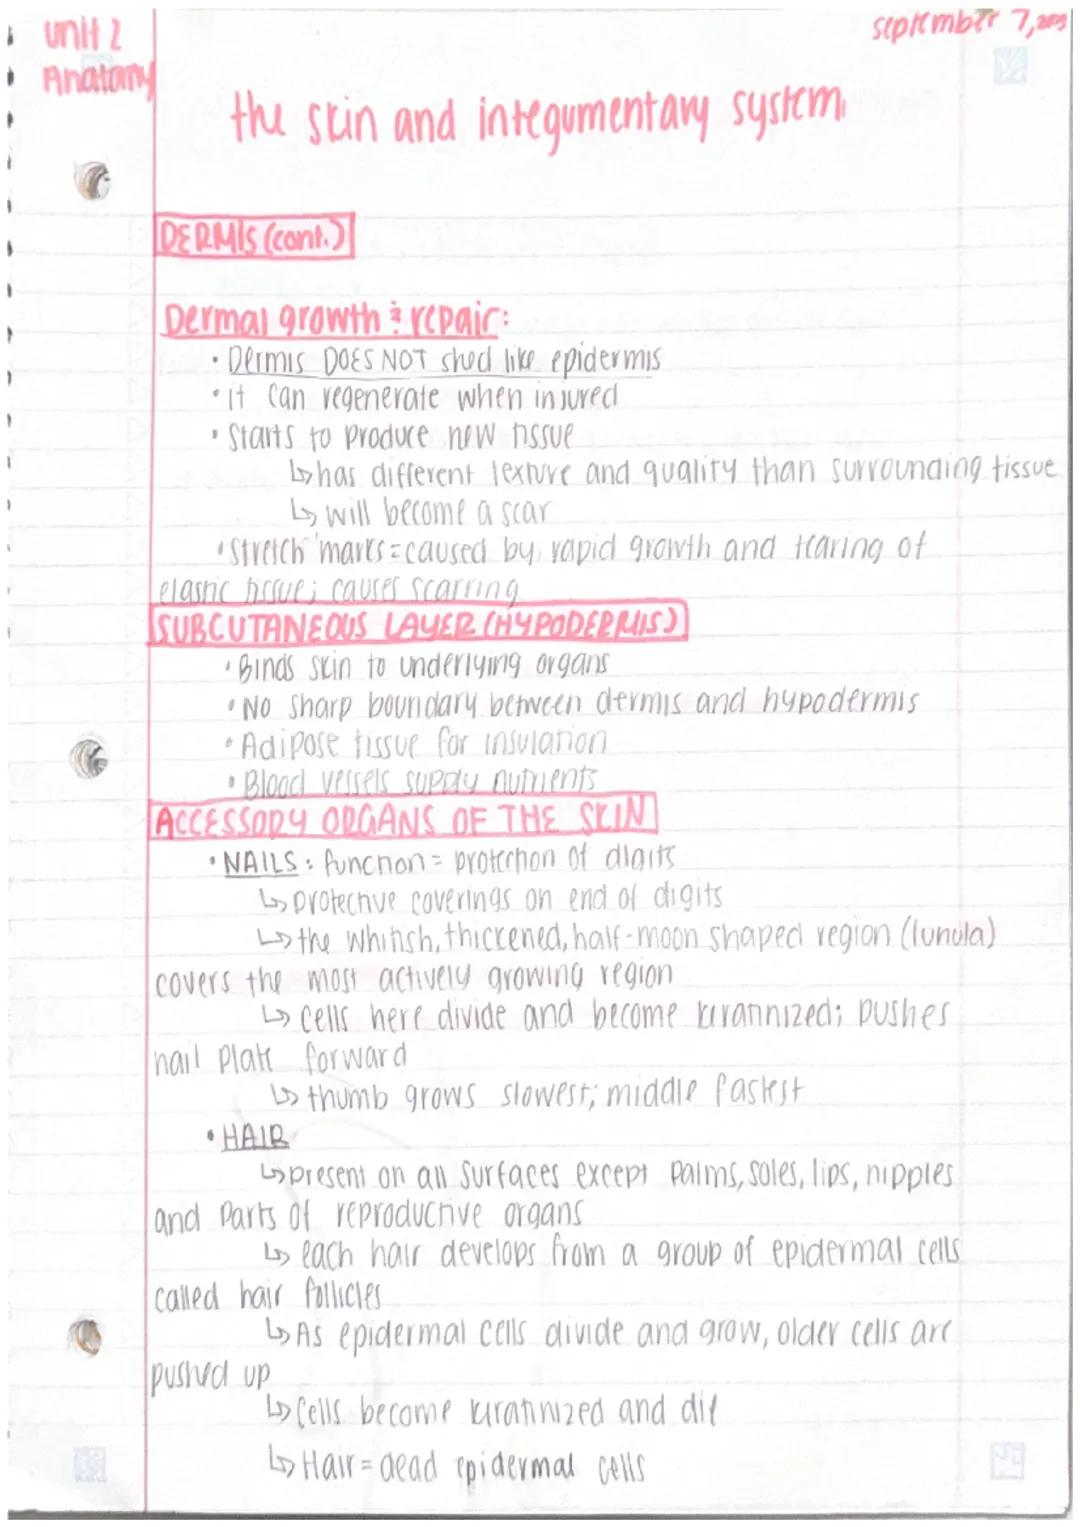 unit 2
September 7,
Anatomy
the skin and integumentary system
DERMIS (cont.)
Dermal growth & repair:
• Dermis DOES NOT shed like epidermis
• it can regenerate when injured
• Starts to produce new tissue
↳ has different texture and quality than surrounding tissue
↳ will become a scar
• Stretch marks = caused by rapid growth and tearing of
elastic tissue; causes scarring
SUBCUTANEOUS LAYER (HYPODERMIS)
• Binds skin to underlying organs
• No sharp boundary between dermis and hypodermis
• Adipose tissue for insulation
• Blood vessels supply nutrients
ACCESSORY ORGANS OF THE SKIN
• NAILS: function = protection of digits
↳ protective coverings on end of digits
↳ the whitish, thickened, half-moon shaped region (lunula)
covers the most actively growing region
↳ cells here divide and become keratinized; pushes
nail plate forward
↳ thumb grows slowest; middle fastest
• HAIR
↳ present on all surfaces except palms, soles, lips, nipples
and parts of reproductive organs
↳ each hair develops from a group of epidermal cells
called hair follicles
↳ As epidermal cells divide and grow, older cells are
pushed up
↳ Cells become keratinized and die
↳ Hair = dead epidermal cells